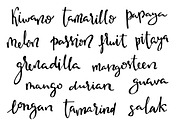 Kiwano tamarillo papaya
melon passion fruit pitaya
grenadilla mangosteen
mango durian guava
longan tamarind salak